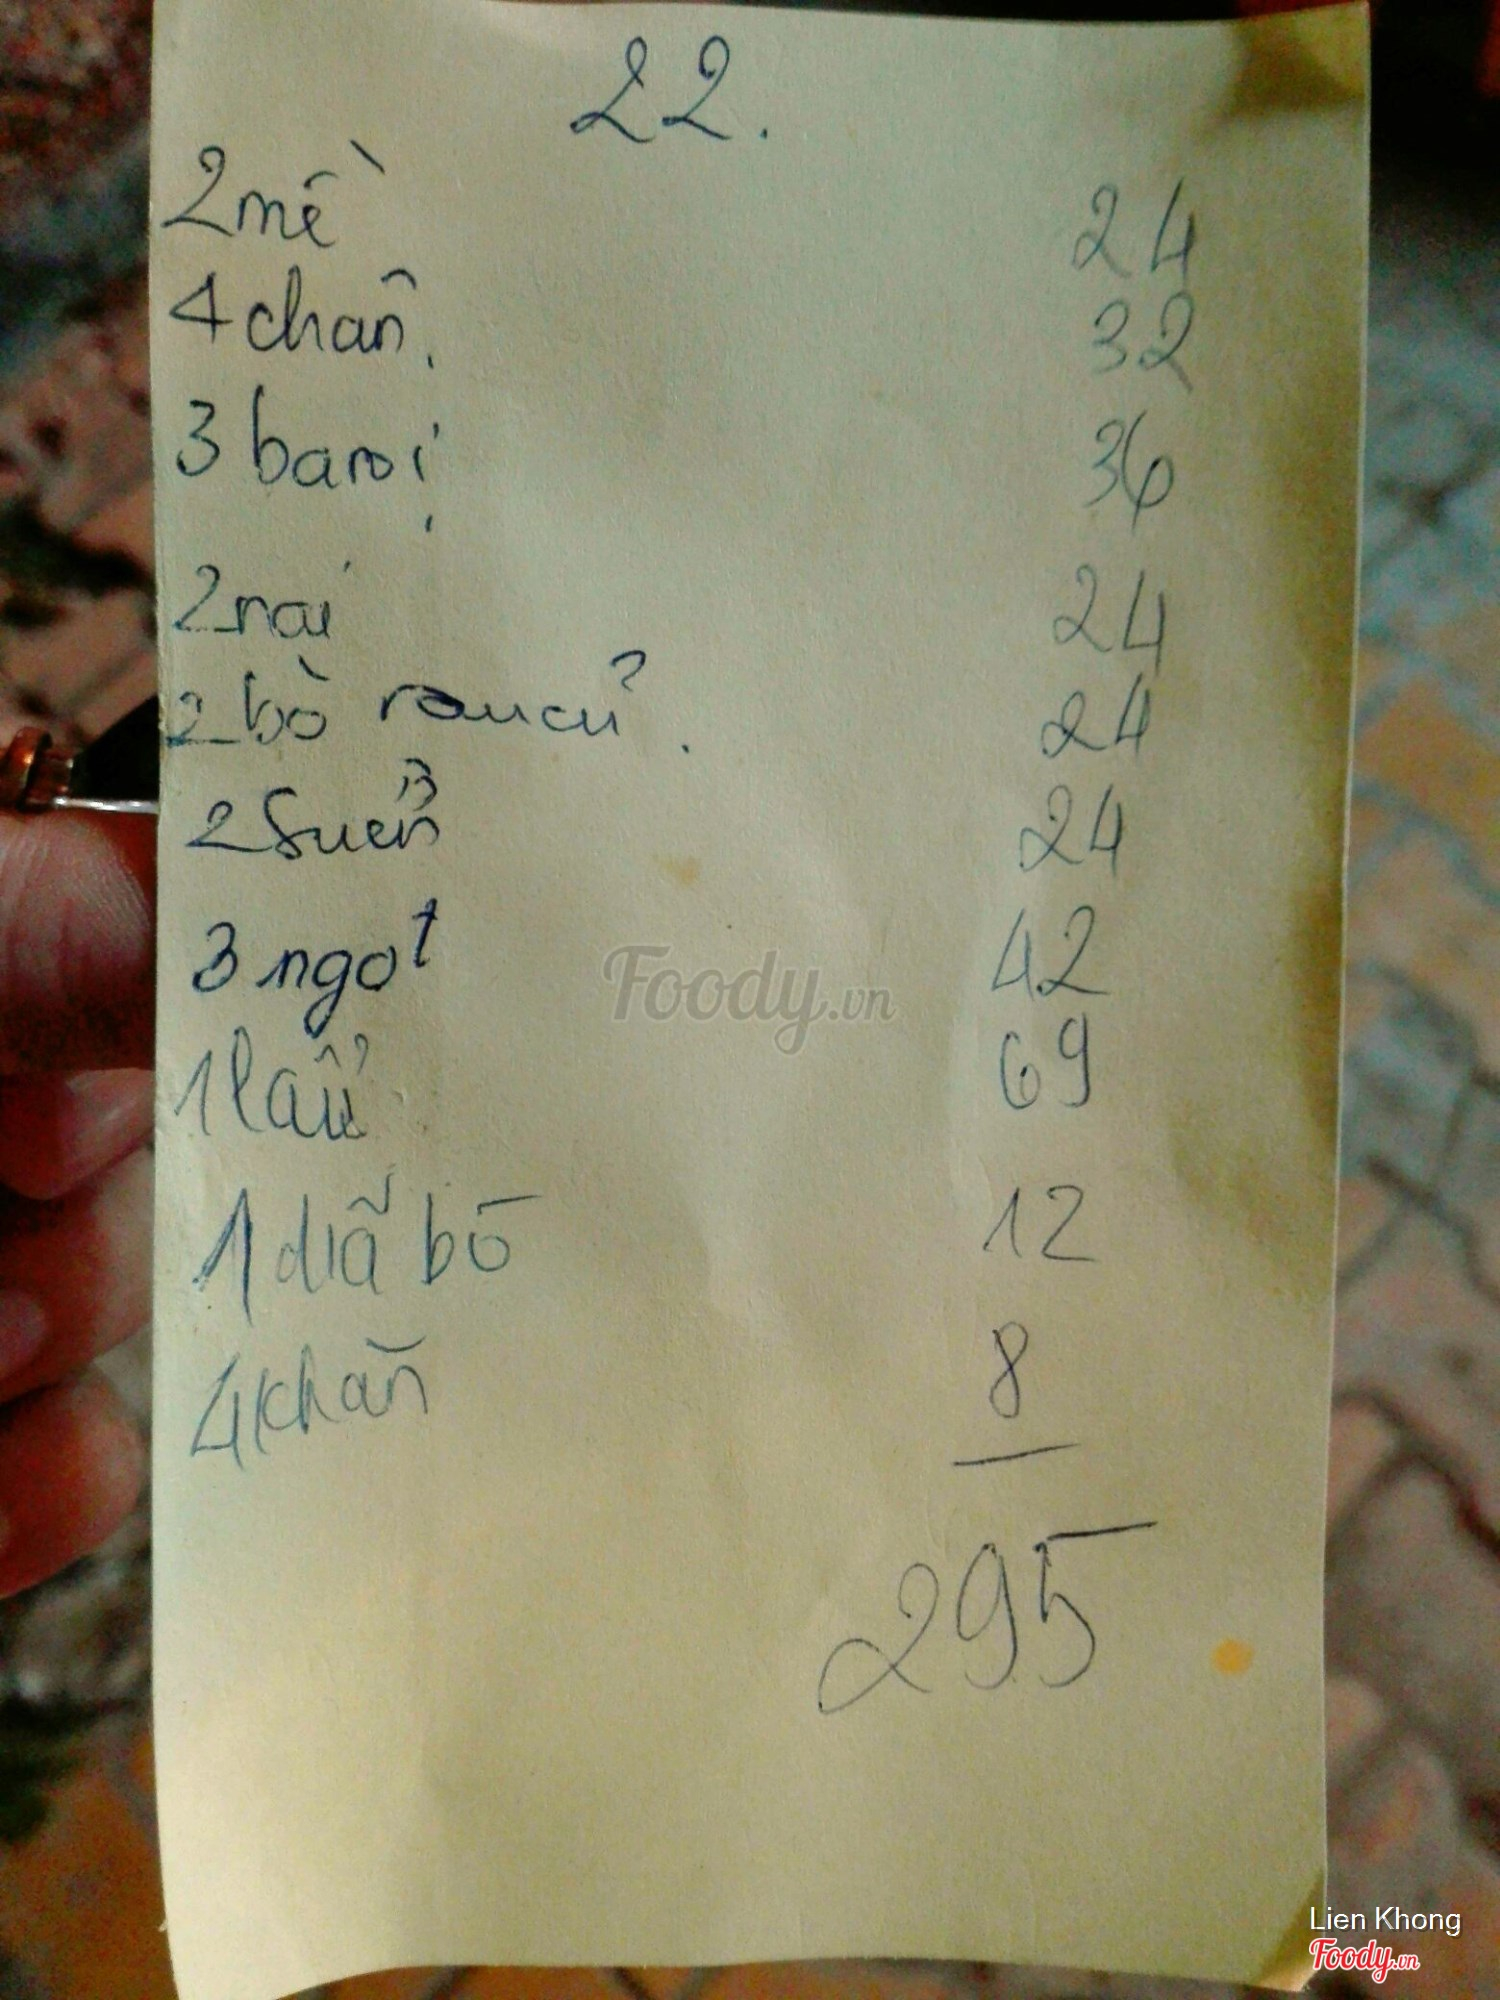 22.
2 mề 24
4 chân. 32
3 ba rọi 36
2 nai 24
2 bò rau củ. 24
2 Suển 24
3 ngọt 42
1 lẩu 69
1 dĩa bò 12
4 khăn 8
295
Foody.vn
Lien Khong
Foody.vn